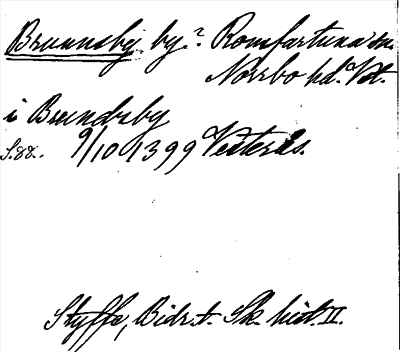 Brunnsby by? Romfartuna sn.
Norrbo hd. Vst.
i Brundzby
S.d.d. 9/10 1399 Vesterås.
Styffe, Bidr. t. Sk. hist. II.